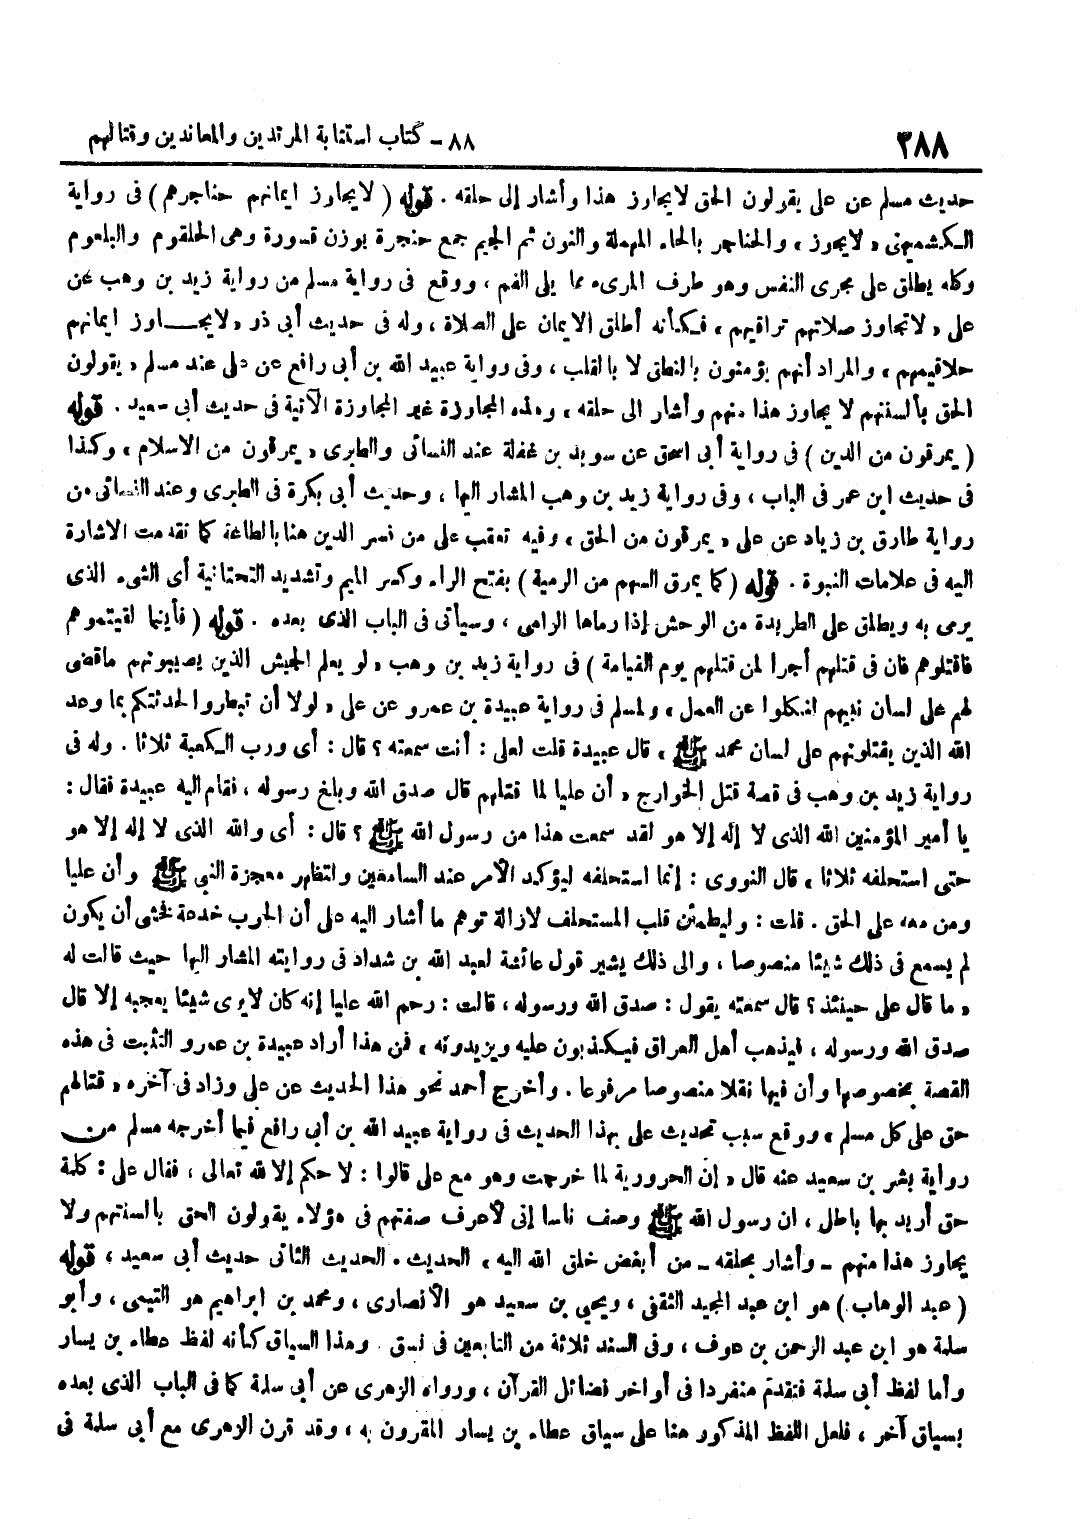 ٢٨٨
٨٨ - كتاب استتابة المرتدين والمعاندين وقتالهم
حديث مسلم عن على يقولون الحق لايجاوز هذا وأشار إلى حلقه . قوله ( لايجاوز ايمانهم حناجرهم ) فى رواية
الكشميهنى « لايجوز » والحناجر بالحاء المهملة والنون ثم الجيم جمع حنجرة بوزن قسورة وهى الحلقوم والبلعوم
وكله يطلق على مجرى النفس وهو طرف المرىء مما يلى الفم ، ووقع فى رواية مسلم من رواية زيد بن وهب عن
على « لاتجاوز صلاتهم تراقيهم » فكأنه أطلق الايمان على الصلاة ، وله فى حديث أبى ذر « لايجاوز ايمانهم
حلاقيمهم » والمراد أنهم يؤمنون بالنطق لا بالقلب ، وفى رواية عبيد الله بن أبى رافع عن على عند مسلم « يقولون
الحق بألسنتهم لا يجاوز هذا منهم وأشار الى حلقه » وهذه المجاوزة غير المجاوزة الآتية فى حديث أبى سعيد . قوله
( يمرقون من الدين ) فى رواية أبى اسحق عن سويد بن غفلة عند النسائى والطبرى « يمرقون من الاسلام » وكذا
فى حديث ابن عمر فى الباب ، وفى رواية زيد بن وهب المشار اليها ، وحديث أبى بكرة فى الطبرى وعند النسائى من
رواية طارق بن زياد عن على « يمرقون من الحق » وفيه تعقب على من فسر الدين هنا بالطاعة كما تقدمت الاشارة
اليه فى علامات النبوة . قوله ( كما يمرق السهم من الرمية ) بفتح الراء وكسر الميم وتشديد التحتانية أى الشىء الذى
يرمى به ويطلق على الطريدة من الوحش إذا رماها الرامى ، وسيأتى فى الباب الذى بعده . قوله ( فأينما لقيتموهم
فاقتلوهم فان فى قتلهم أجرا لمن قتلهم يوم القيامة ) فى رواية زيد بن وهب « لو يعلم الجيش الذين يصيبونهم ماقضى
لهم على لسان نبيهم لنكلوا عن العمل » ولمسلم فى رواية عبيدة بن عمرو عن على « لولا أن تبطروا لحدثتكم بما وعد
الله الذين يقتلونهم على لسان محمد ﷺ ، قال عبيدة قلت لعلى : أنت سمعته ؟ قال : أى ورب الكعبة ثلاثا . وله فى
رواية زيد بن وهب فى قصة قتل الخوارج « أن عليا لما قتلهم قال صدق الله وبلغ رسوله ، فقام اليه عبيدة فقال :
يا أمير المؤمنين الله الذى لا إله إلا هو لقد سمعت هذا من رسول الله ﷺ ؟ قال : أى والله الذى لا إله إلا هو
حتى استحلفه ثلاثا » قال النووى : إنما استحلفه ليؤكد الأمر عند السامعين ولتظهر معجزة النبى ﷺ وأن عليا
ومن معه على الحق . قلت : وليطمئن قلب المستحلف لازالة توهم ما أشار اليه على أن الحرب خدعة فخشى أن يكون
لم يسمع فى ذلك شيئا منصوصا ، والى ذلك يشير قول عائشة لعبد الله بن شداد فى روايته المشار اليها حيث قالت له
« ما قال على حينئذ ؟ قال سمعته يقول : صدق الله ورسوله ، قالت : رحم الله عليا إنه كان لا يرى شيئا يعجبه إلا قال
صدق الله ورسوله ، فيذهب أهل العراق فيكذبون عليه ويزيدونه » فمن هذا أراد عبيدة بن عمرو التثبت فى هذه
القصة بخصوصها وأن فيها نقلا منصوصا مرفوعا . وأخرج أحمد نحو هذا الحديث عن على وزاد فى آخره « قتالهم
حق على كل مسلم » ووقع سبب تحديث على بهذا الحديث فى رواية عبيد الله بن أبى رافع فيما أخرجه مسلم من
رواية بشر بن سعيد عنه قال « إن الحرورية لما خرجت وهو مع على قالوا : لا حكم إلا لله تعالى ، فقال على : كلمة
حق أريد بها باطل ، ان رسول الله ﷺ وصف ناسا إنى لأعرف صفتهم فى هؤلاء يقولون الحق بالسنتهم ولا
يجاوز هذا منهم - وأشار بحلقه - من أبغض خلق الله اليه » الحديث . الحديث الثانى حديث أبى سعيد ، قوله
( عبد الوهاب ) هو ابن عبد المجيد الثقفى ، ويحيى بن سعيد هو الأنصارى ، ومحمد بن ابراهيم هو التيمى ، وأبو
سلمة هو ابن عبد الرحمن بن عوف ، وفى السند ثلاثة من التابعين فى نسق . وهذا السياق كأنه لفظ عطاء بن يسار
وأما لفظ أبى سلمة فتقدم منفردا فى أواخر فضائل القرآن ، ورواه الزهرى عن أبى سلمة كما فى الباب الذى بعده
بسياق آخر ، فلعل اللفظ المذكور هنا على سياق عطاء بن يسار المقرون به ، وقد قرن الزهرى مع أبى سلمة فى